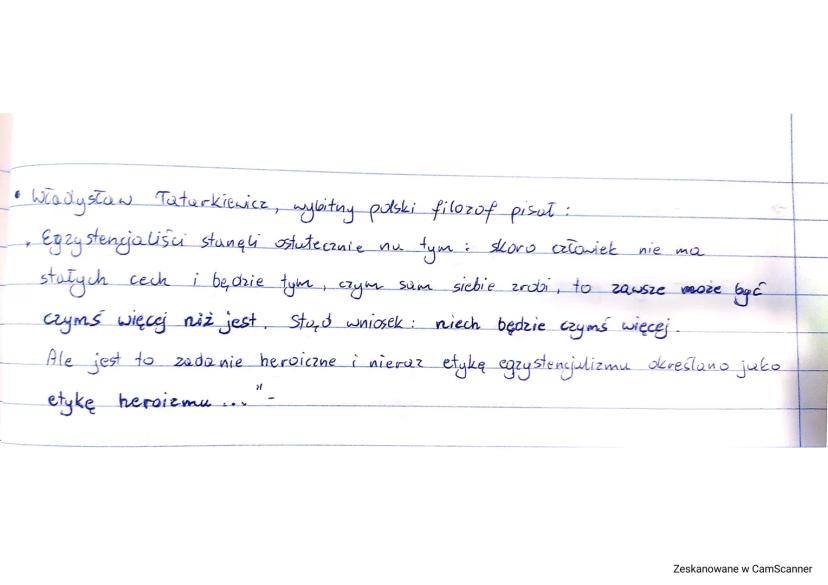 • Władysław Tatarkiewicz, wybitny polski filozof pisał:
„Egzystencjaliści stanęli ostatecznie na tym: skoro człowiek nie ma
stałych cech i będzie tym, czym sam siebie zrobi, to zawsze może być
czymś więcej niż jest. Stąd wniosek: niech będzie czymś więcej.
Ale jest to zadanie heroiczne i nieraz etykę egzystencjalizmu określano jako
etykę heroizmu ..." -
Zeskanowane w CamScanner